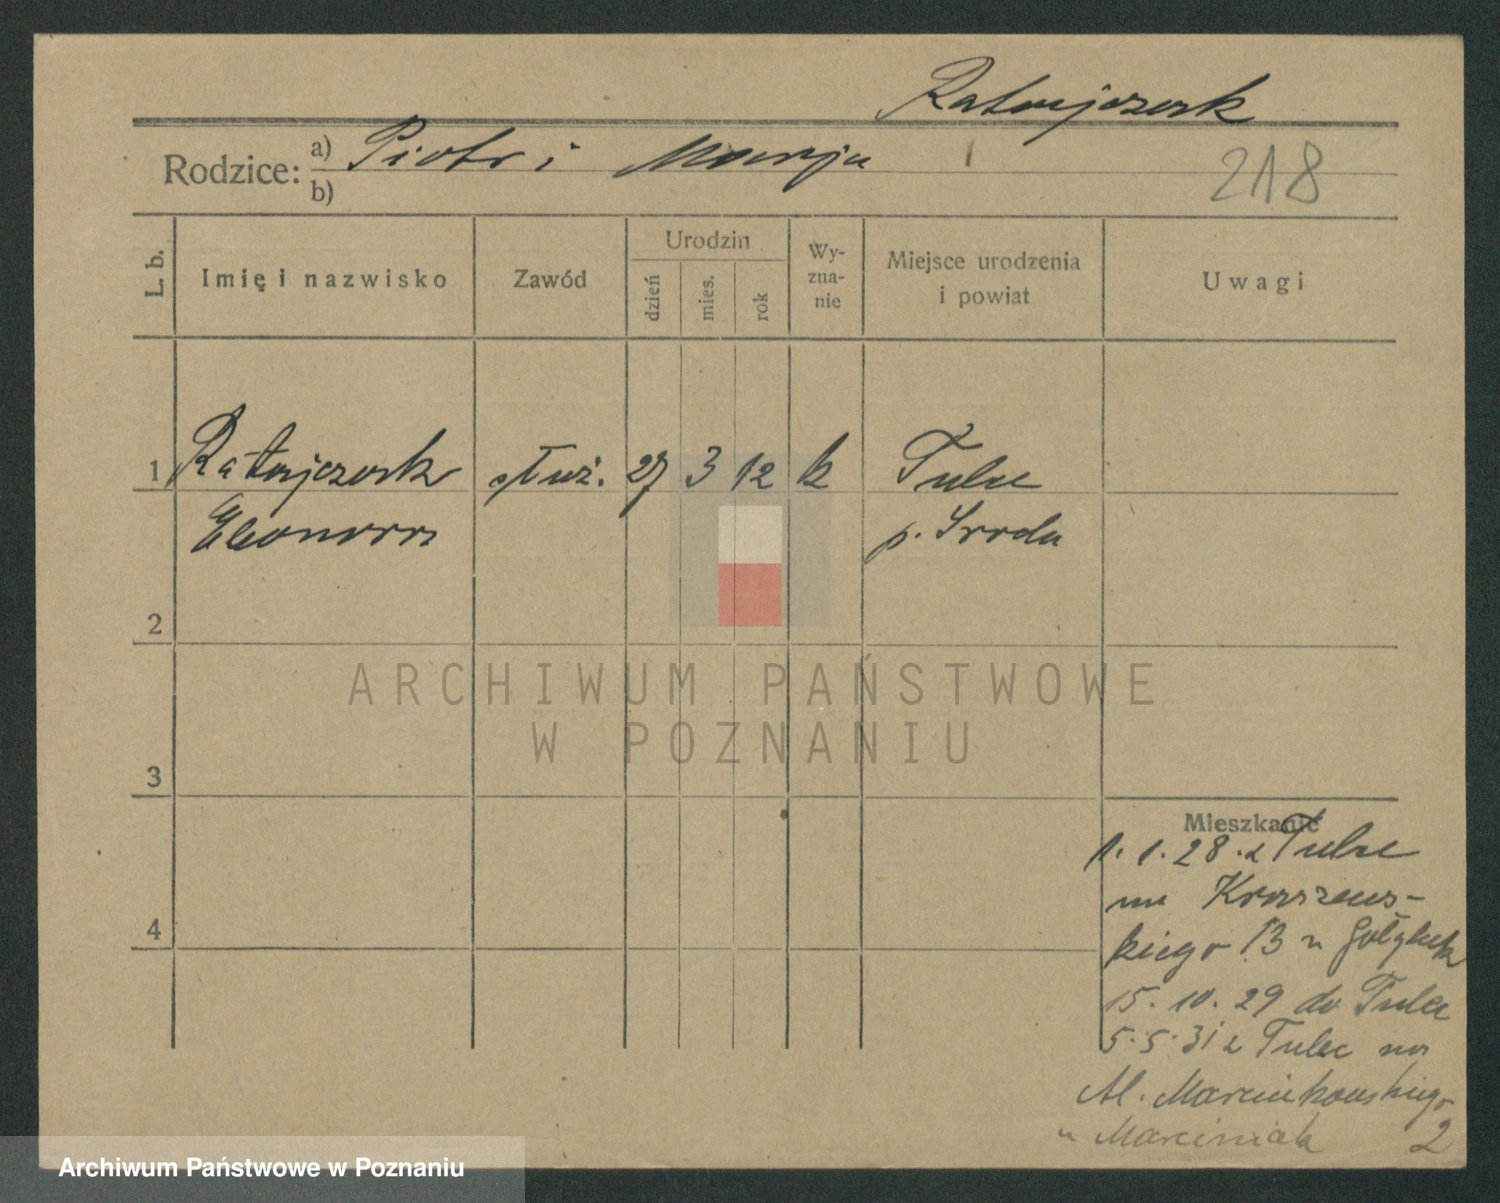 Ratajczak
Rodzice: a) Piotr i Marja
b)
218
L. b.
Imię i nazwisko
Zawód
Urodzin
dzień
mies.
rok
Wy-
zna-
nie
Miejsce urodzenia
i powiat
Uwagi
1 Ratajczak służ. 27 3 12 k Tulce
Eleonora p. Środa
2
3
4
ARCHIWUM PAŃSTWOWE
W POZNANIU
Mieszkanie
1.1.28 z Tulce
na Kraszews-
kiego 13 u
15.10.29 do Tulec
5.5.31 z Tulec na
Al. Marcinkowskiego
u Marciniak 2
Archiwum Państwowe w Poznaniu